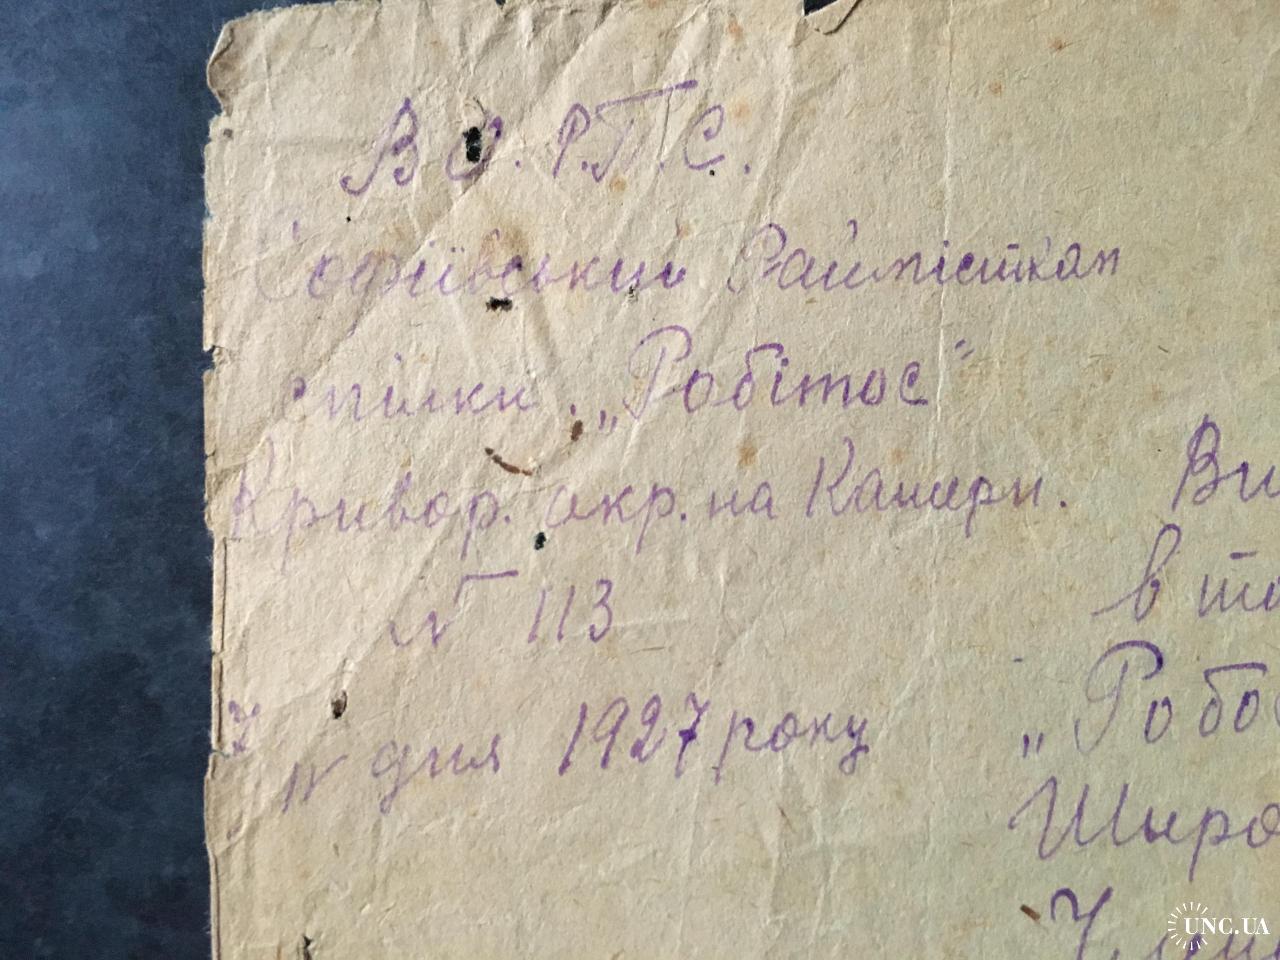 В О. Р.П.С.
Софіївський Раймістком
спілки „Робітос"
Кривор. окр. на Катери.
№ 113
7/IV дня 1927 року
Ви
в то
„Робо
Широ
UNC.UA